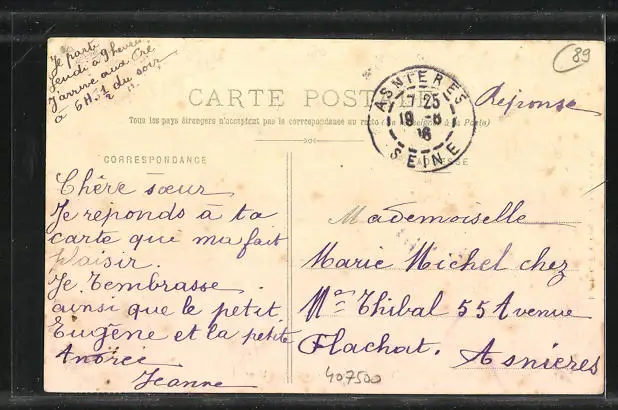 Je part
Jeudi à 9 heures
J'arrive aux Cré
à 6H 1/2 du soir
89
CARTE POSTALE
Tous les pays étrangers n'acceptent pas la correspondance au recto (Se renseigner à la Poste)
ASNIERES
17 25
19 -8
SEINE
Réponse
CORRESPONDANCE
ADRESSE
Chère sœur
Je réponds à ta
carte qui ma fait
plaisir.
Je t'embrasse
ainsi que le petit
Eugène et la petite
Andrée
Jeanne
Mademoiselle
Marie Michel chez
Me Thibal 55 Avenue
Flachat. Asnières
407500